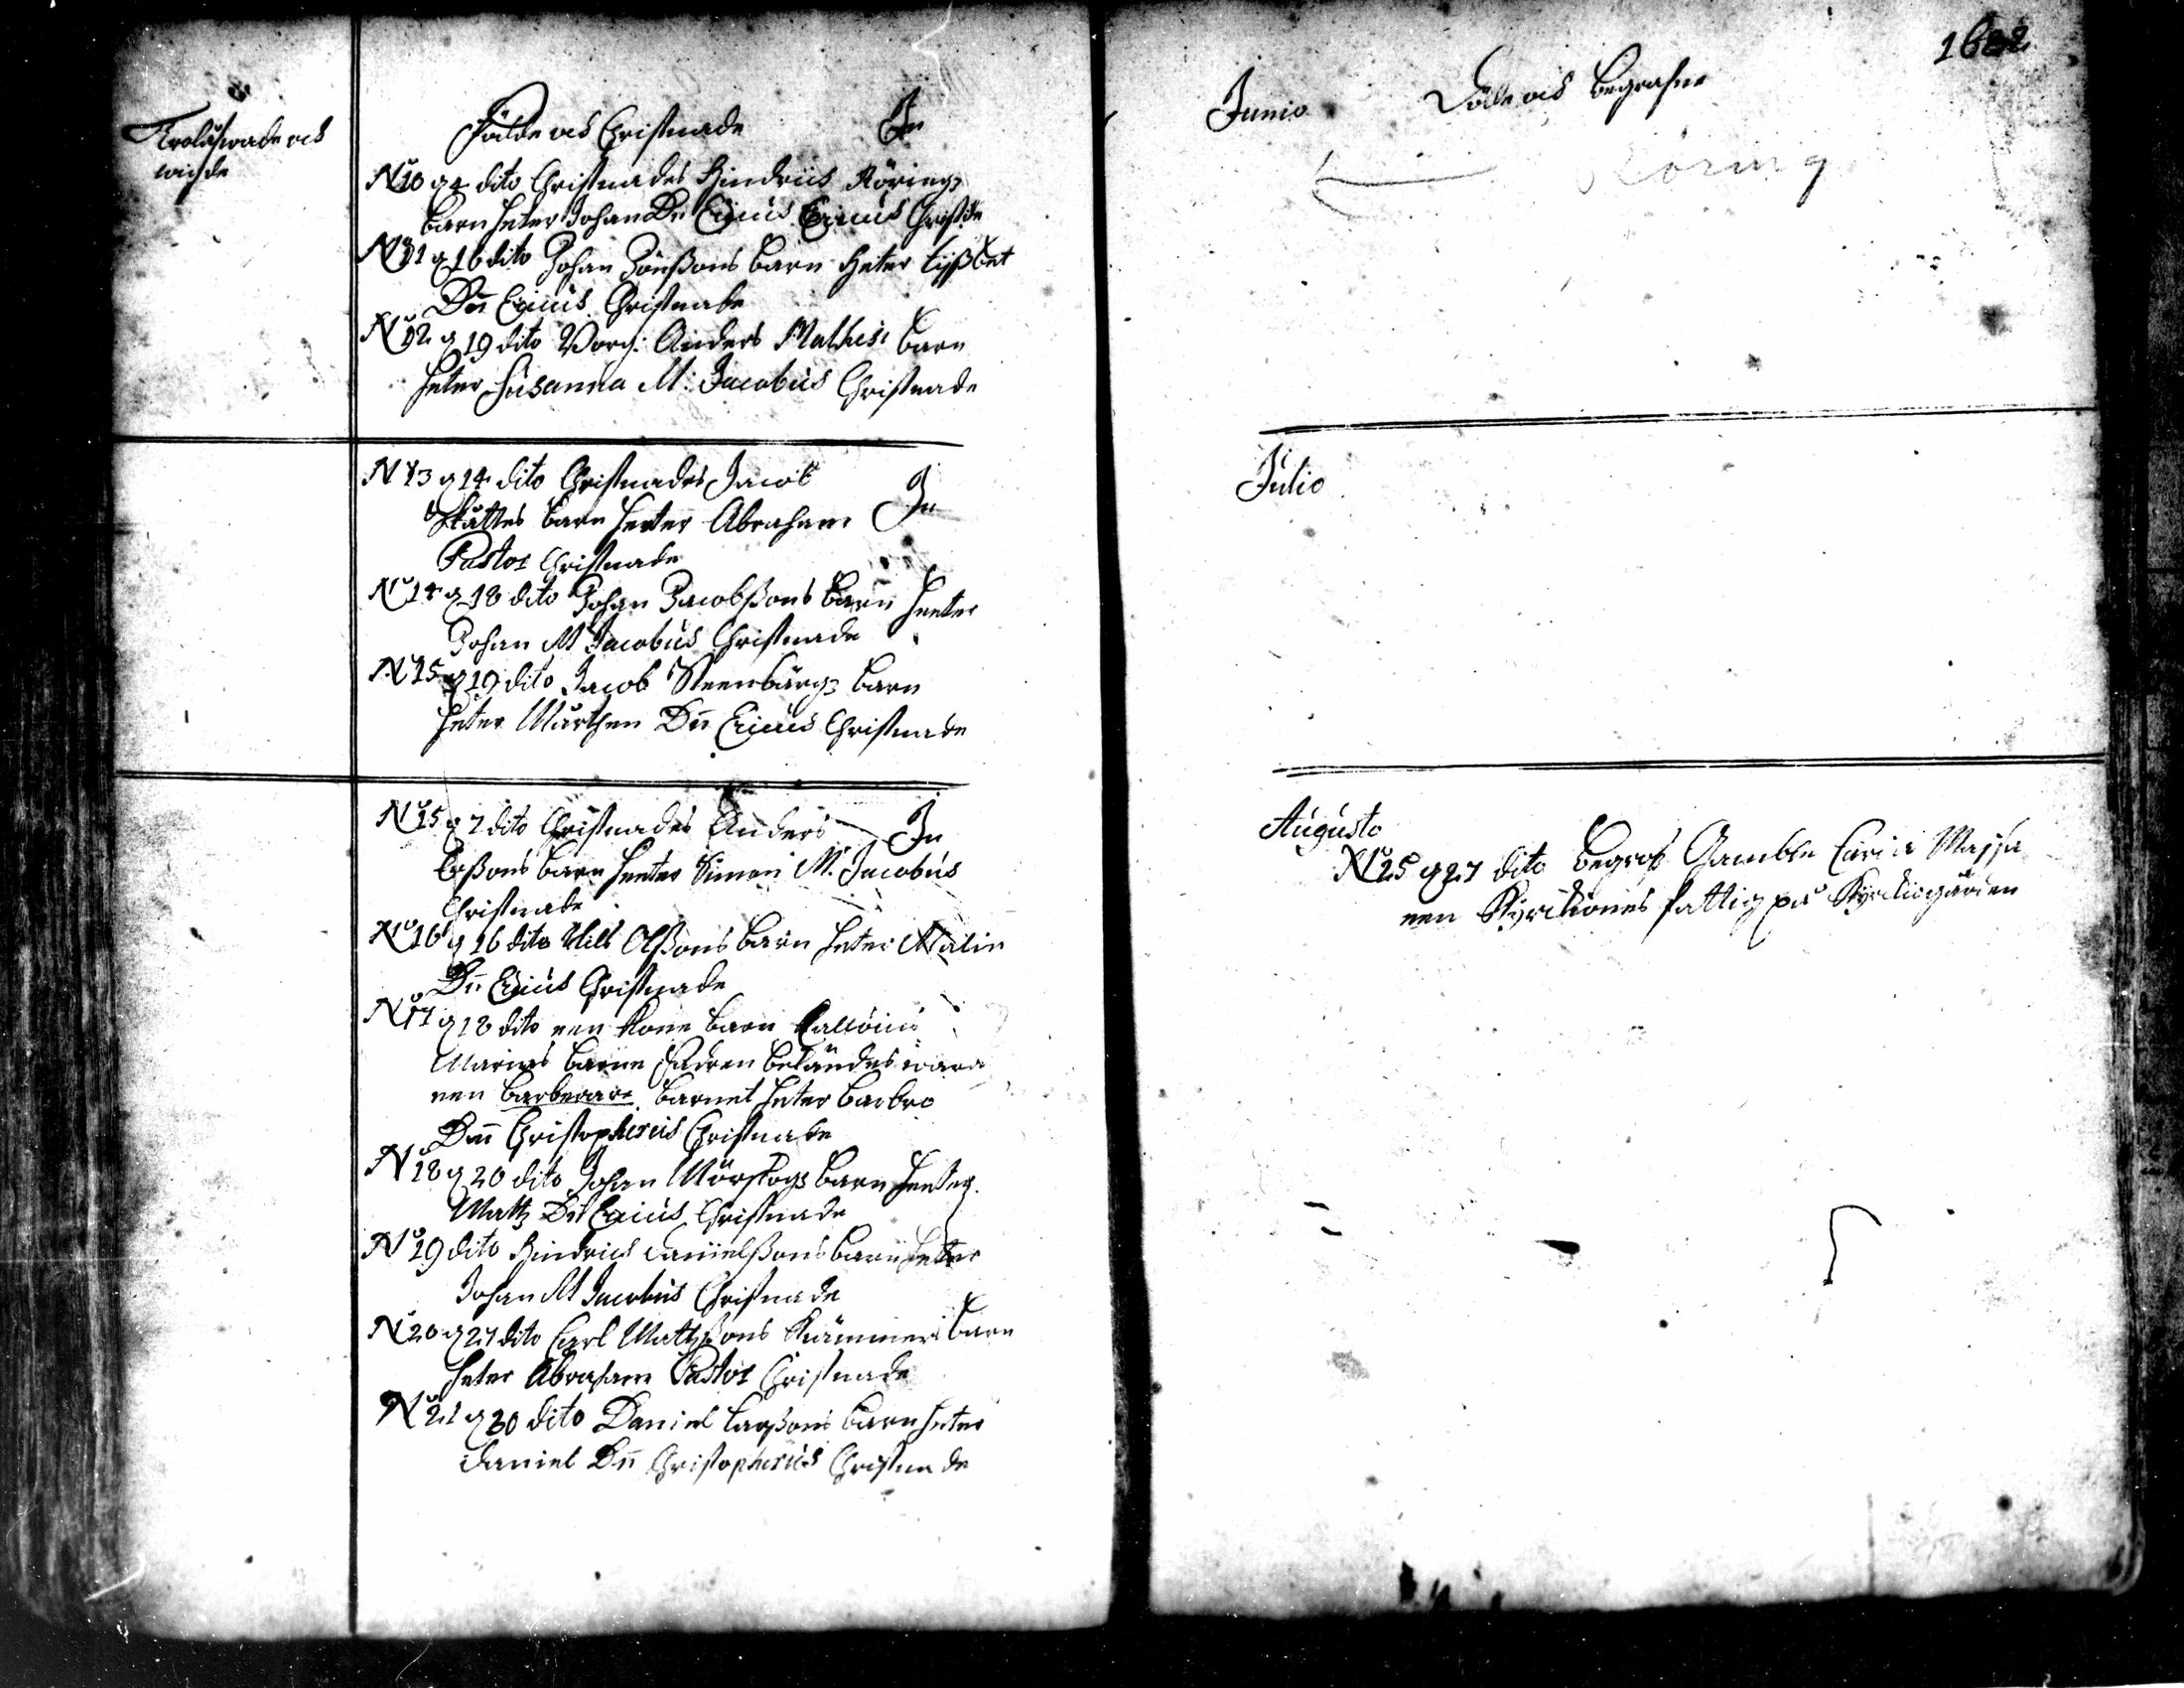 Trolåfwade och
wigde
Födde och Christnade In
No 10 d 4 dito Christnades Hindrics Rörings
barn heter Johan Dn Ericus Ericus Christnade
No 11 d 16 dito Johan Jönßons barn heter Lijßbet
Dn Ericus Christnade
No 12 d 19 dito Borg: Anders Mathesi barn
heter Susanna M: Jacobus Christnade
No 13 d 14 dito Christnades Jacob In
Skättes barn heeter Abraham
Pastor Christnade
No 14 d 18 dito Johan Jacobßons barn heeter
Johan M Jacobus Christnade
No 15 d 19 dito Jacob Steenbärgs barn
heter Mårthen Dn Ericus Christnade
No 15 d 7 dito Christnades Anders In
barn heeter Simon M. Jacobus
Christnade
No 16 d 16 dito Nils Olßons barn heter Malin
Dn Ericus Christnade
No 17 d 18 dito een barn
Maries barne fadren bekändes wara
een barberare barnet heter Barbro
Dnn Christopherus Christnade
No 18 d 20 dito Johan Mörskogs barn heeter
Matts Dn Ericus Christnade
No 19 dito Hindrics Danielßons barn heter
Johan M Jacobus Christnade
No 20 d 27 dito Carl Mattzßons Kämners barn
heter Abraham Pastor Christnade
No 21 d 30 dito Daniel Larßons barn heter
Daniel Dn Christopherus Christnade
1682
Junio Döde och begrafne
Röring
Julio
Augusto
No 25 d 27 dito begrofs Gamble Carin Maija
een Kyrckiones fattig på Kyrckiogården